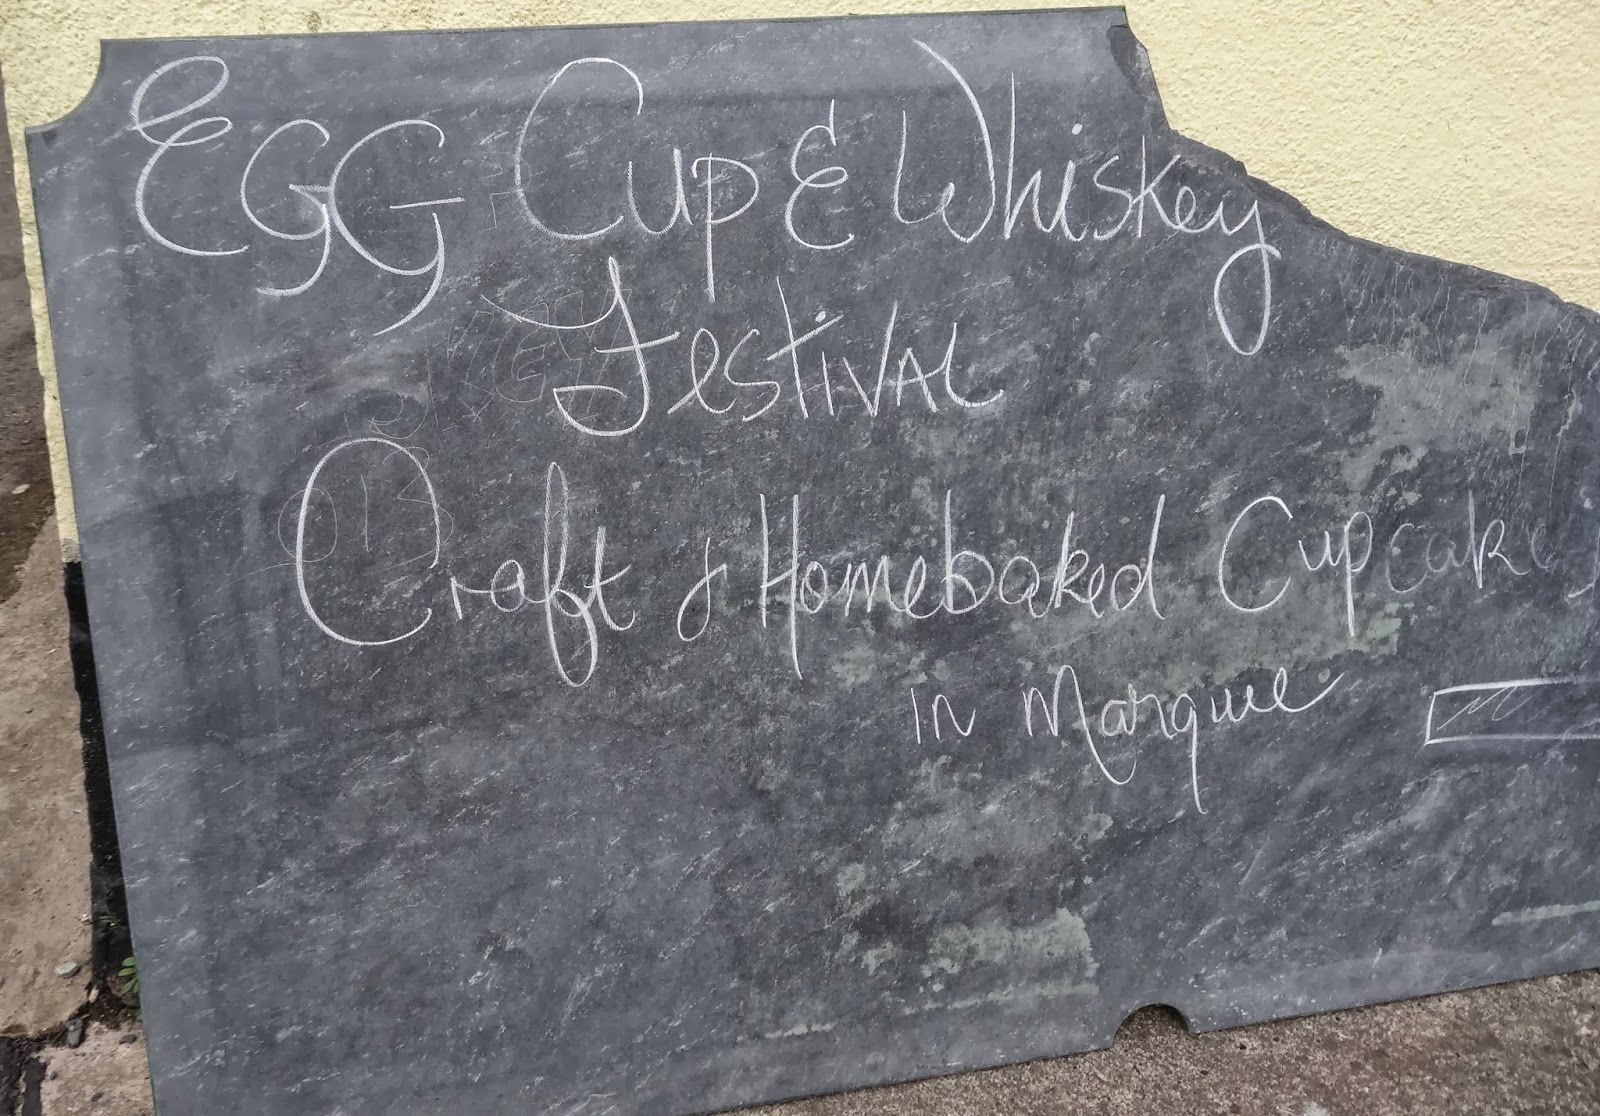 EGG Cup & Whiskey
Festival
Craft & Homebaked Cupcakes
in Marquee